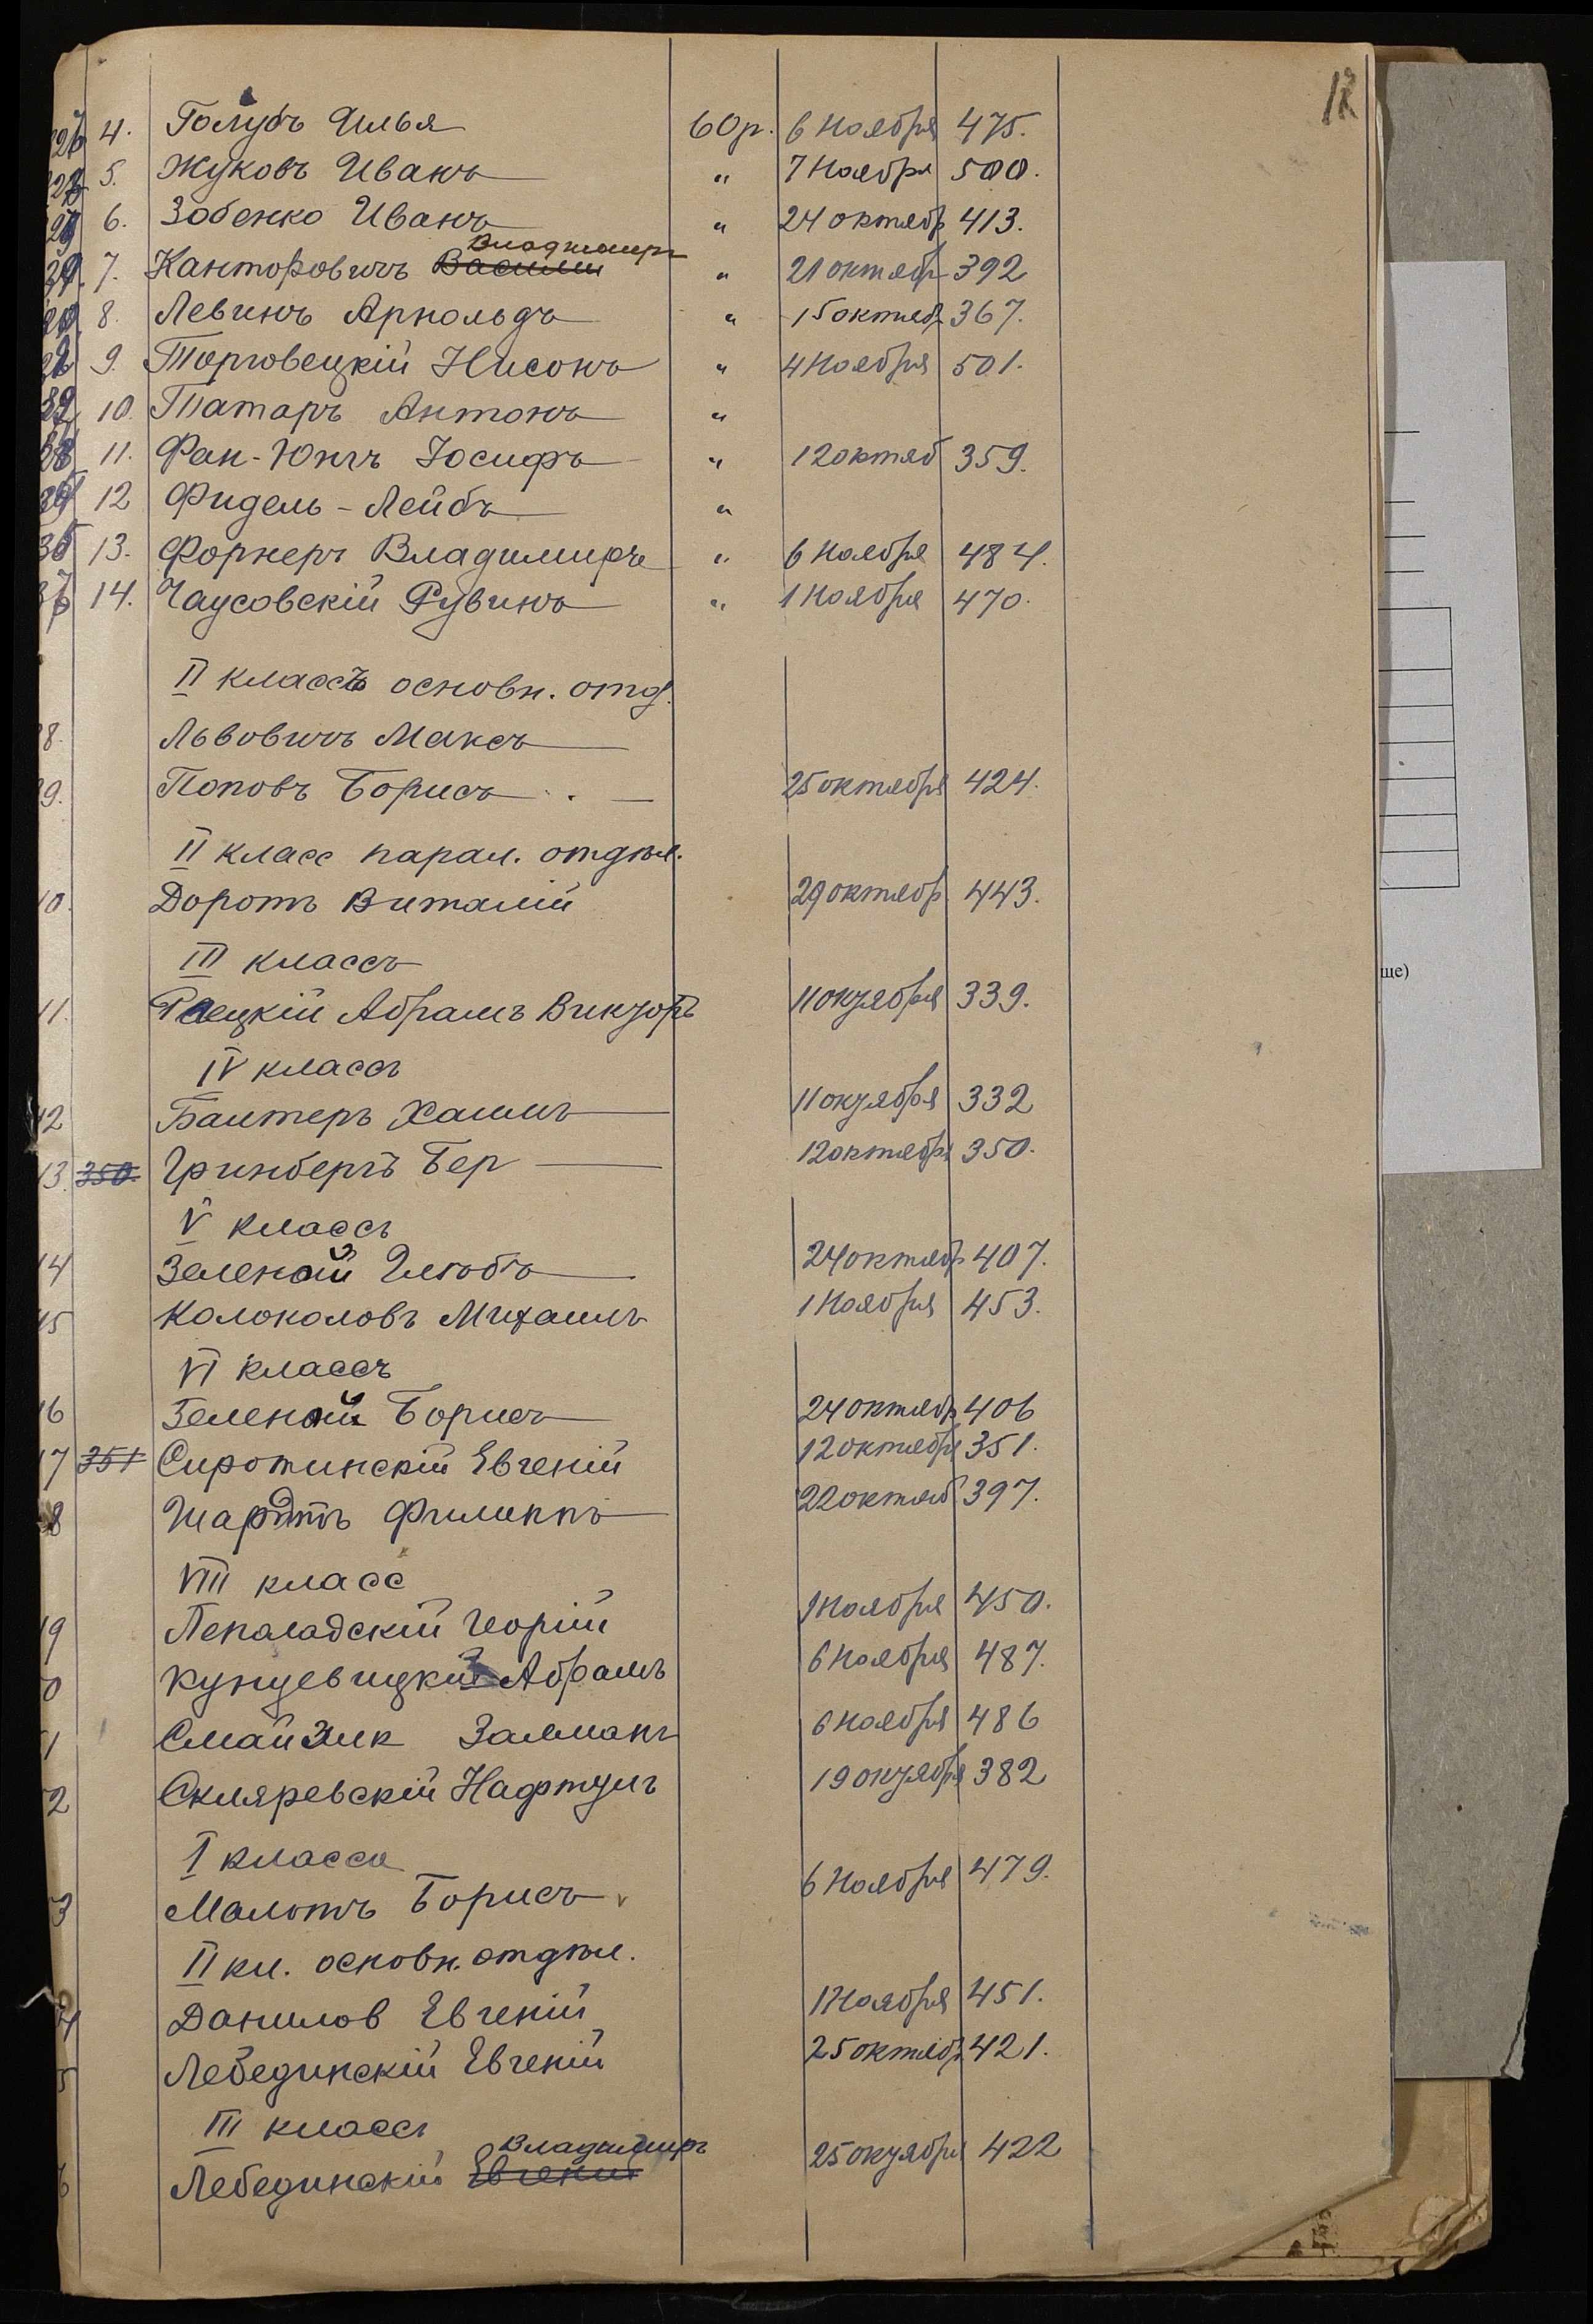 12
4. Голубъ Илья 60 р. 6 Ноября 475.
5. Жуковъ Иванъ " 7 Ноября 500.
6. Зобенко Иванъ " 24 октябр 413.
Владимиръ
7. Канторовичъ Василий " 21 октябр 392
8. Левинъ Арнольдъ " 15 октябр 367.
9. Торговецкій Нисонъ " 4 Ноября 501.
10. Татаръ Антонъ "
11. Фан-Юнгъ Іосифъ " 12 октяб 359.
12 Фидель-Лейбъ "
13. Форнеръ Владимиръ " 6 Ноября 484.
14. Чаусовскій Рувинъ " 1 Ноября 470.
II классъ основн. отд.
8. Львовичъ Максъ
9. Поповъ Борисъ 25 октября 424.
II класс парал. отдѣл.
10. Доротъ Виталій 29 октябр 443.
III классъ
11. Раецкій Абрамъ Викторъ 11 октября 339.
IV классъ
12 Баитеръ Хаимъ 11 октября 332
13. 350. Гринбергъ Бер 12 октября 350.
V классъ
14 Зеленой Глѣбъ 24 октябр 407.
15 Колоколовъ Михаилъ 1 Ноября 453.
VI классъ
16 Зеленой Борисъ 24 октябр 406
17 351 Сиротинскій Евгеній 12 октября 351.
8 Филиппъ 22 октяб 397.
VIII класс
19 Георгій 1 Ноября 450.
0 Кунцевицкій Абрамъ 6 Ноября 487.
1 Смайзик Залманъ 6 Ноября 486
2 Скляревскій Нафтулъ 19 октября 382
I класса
3 Малотъ Борисъ 6 Ноября 479.
II кл. основн. отдѣл.
4 Данилов Евгеній 1 Ноября 451.
5 Лебединскій Евгеній 25 октябр 421.
III классъ
Владимиръ
6 Лебединскій Евгений 25 октября 422
ше)